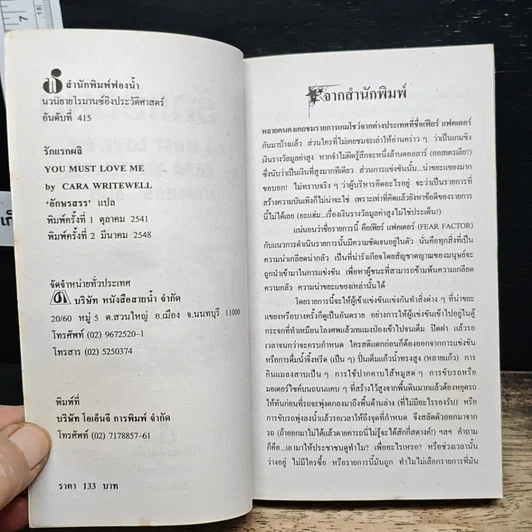 สำนักพิมพ์ฟองน้ำ
นวนิยายโรมานซ์อิงประวัติศาสตร์
อันดับที่ 415
รักแรกผลิ
YOU MUST LOVE ME
by CARA WRITEWELL
'อักษรสรร' แปล
พิมพ์ครั้งที่ 1 ตุลาคม 2541
พิมพ์ครั้งที่ 2 มีนาคม 2548
จัดจำหน่ายทั่วประเทศ
บริษัท หนังสือสายน้ำ จำกัด
20/60 หมู่ 5 ต.สวนใหญ่ อ.เมือง จ.นนทบุรี 11000
โทรศัพท์ (02) 9672520-1
โทรสาร (02) 5250374
พิมพ์ที่
บริษัท โอเอ็นจี การพิมพ์ จำกัด
โทรศัพท์ (02) 7178857-61
ราคา 133 บาท
จากสำนักพิมพ์
หลายคนคงเคยชมรายการเกมโชว์จากต่างประเทศที่ชื่อเฟียร์ แฟคเตอร์
กันมาบ้างแล้ว ส่วนใครที่ไม่เคยชมจะเล่าให้อ่านคร่าว ๆ ว่าเป็นเกมชิง
เงินรางวัลมูลค่าสูง หากจำไม่ผิดรู้สึกจะหนึ่งล้านดอลลาร์ (ออสเตรเลีย?)
ซึ่งนับว่าเป็นเงินที่สูงมากทีเดียว ส่วนการแข่งขันนั้น...น่าขยะแขยงมาก
ขอบอก! ไม่ทราบจริง ๆ ว่าผู้บริหารคิดอะไรอยู่ จะว่าเป็นรายการที่
สร้างความบันเทิงก็ไม่น่าจะใช่ เพราะเท่าที่คิดแล้วยังหาข้อดีของรายการ
นี้ไม่ได้เลย (อะแฮ่ม...เรื่องเงินรางวัลมูลค่าสูงไม่ใช่ประเด็น!)
แน่นอนว่าชื่อรายการนี้ คือเฟียร์ แฟคเตอร์ (FEAR FACTOR)
กับแนวการดำเนินรายการนั้นมีความชัดเจนอยู่ในตัว นั่นคือทุกสิ่งที่เป็น
ความน่าเกลียดน่ากลัว เป็นที่น่ารังเกียจโดยสัญชาตญาณของมนุษย์จะ
ถูกนำเข้ามาในการแข่งขัน เพื่อหาผู้ชนะที่สามารถข้ามพ้นความเกลียด
ความกลัว ความน่าขยะแขยงเหล่านั้นได้
โดยรายการนี้จะให้ผู้เข้าแข่งขันแข่งกันทำสิ่งต่าง ๆ ที่น่าขยะ
แขยงหรือบางครั้งก็ดูเป็นอันตราย อย่างการให้ผู้แข่งขันเข้าไปอยู่ในตู้
กระจกที่ทำเหมือนโลงศพแล้วเทแมงป่องเข้าไปจนเต็ม ปิดฝา แล้วรอ
เวลาจนกว่าจะครบกำหนด ใครสติแตกก่อนก็ต้องออกจากการแข่งขัน
หรือการดื่มน้ำจิ้งหรีด (เป็น ๆ) ปั่นเต็มแก้วน้ำทรงสูง (หลายแก้ว) การ
กินแมลงสาบเป็น ๆ การใช้ปากคาบไส้หมูสด ๆ การขับรถหรือ
มอเตอร์ไซค์บนถนนแคบ ๆ ที่สร้างไว้สูงจากพื้นดินมากแล้วต้องหยุดรถ
ให้ทันก่อนที่รถจะพุ่งตกลงมาถึงพื้นด้านล่าง (ที่ไม่มีอะไรรองรับ) หรือ
การขับรถพุ่งลงน้ำแล้วรอเวลาให้ถึงจุดที่กำหนด จึงสลัดตัวออกมาจาก
รถ (ถ้าออกมาไม่ได้แล้วตายคารถนี่ไม่รู้จะได้สักกี่สตางค์!) ฯลฯ คำถาม
ก็คือ...เอามาให้ประชาชนดูทำไม? เพื่ออะไรเหรอ? หรือช่วงเวลานั้น
ว่างอยู่ ไม่มีใครซื้อ หรือรายการนี้มันถูก ทำไมไม่เลือกรายการที่มัน